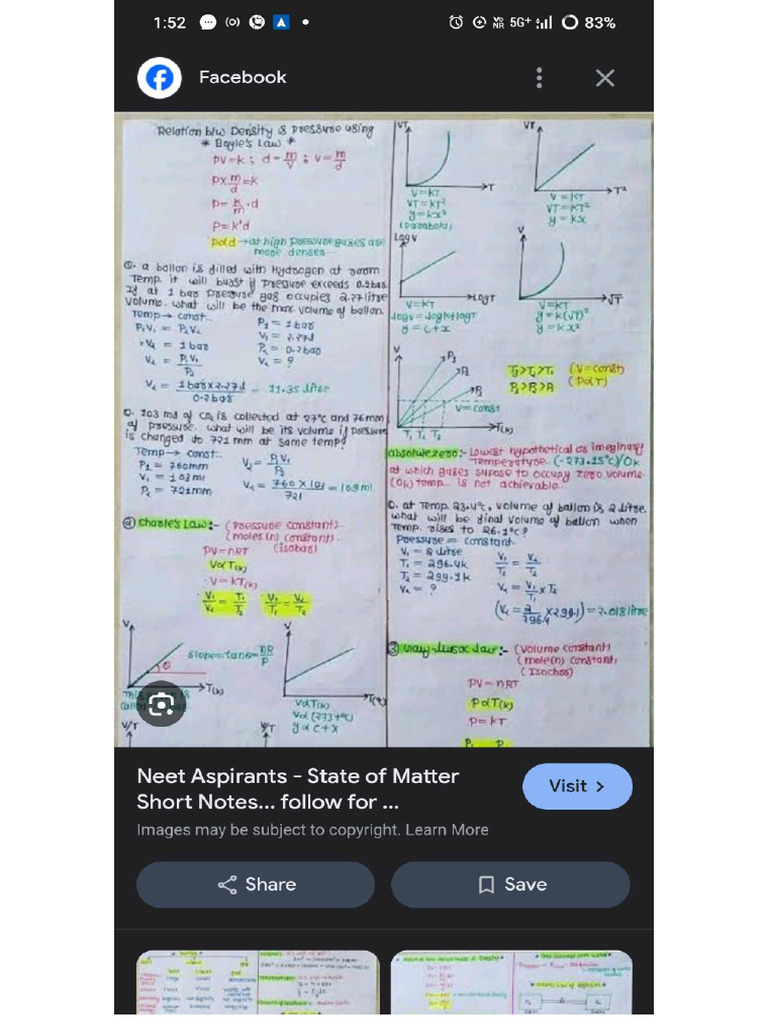 1:52
VO NR 5G+ 83%
Facebook
Relation b/w Density & pressure using
* Boyle's Law *
PV=k ; d=m/V ; V=m/d
P×m/d=k
P=k/m·d
P=k'd
P∝d → at high pressure gases are
more denser
Q. a ballon is filled with Hydrogen at room
Temp. it will bust if pressure exceeds 0.2bar
If at 1 bar pressure gas occupies 2.27litre
Volume. what will be the max volume of ballon.
Temp → const..
P₁V₁ = P₂V₂
V₂ = P₁V₁/P₂
V₂ = 1bar×2.27l/0.2bar = 11.35 litre
P₁ = 1bar
V₁ = 2.27l
P₂ = 0.2bar
V₂ = ?
Q. 103 ml of CO₂ is collected at 27°C and 76mm
of pressure. what will be its volume if pressure
is changed to 721 mm at same temp?
Temp → const..
P₁ = 760mm
V₁ = 103ml
P₂ = 721mm
V₂ = P₁V₁/P₂
V₂ = 760×103/721 = 109ml
② Charle's Law:- (Pressure constant)
(moles(n) constant)
(isobar)
PV=nRT
V∝T(k)
V=kT(k)
V₁/V₂ = T₁/T₂ V₁/T₁ = V₂/T₂
V
Slope=tanθ=nR/P
θ
T(k)
V
T(°c)
V∝T(k)
V∝(273+°c)
y∝c+x
V/T
V/T
VT
T
V=kT
VT=kT²
y=kx²
(parabola)
VT
T²
V=kT
VT=kT²
y=kx
logV
logT
V=kT
logV=logk+logT
y=c+x
V
√T
V=kT
y=k(√T)²
y=kx²
V
P₃
P₂
P₁
V=const
T₁ T₂ T₃
T(k)
T₃>T₂>T₁ (V=const)
P₃>P₂>P₁ (P∝T)
absolute zero:- Lowest hypothetical or imeginary
Temperature (-273.15°C)/0k
at which gases supose to occupy zero volume.
(0k) temp... is not achievable..
Q. at Temp 23.4°c, volume of ballon is 2 litre.
what will be final volume of ballon when
temp. rises to 26.1°c?
Pressure = constant
V₁ = 2 litre
T₁ = 296.4k
T₂ = 299.1k
V₂ = ?
V₁/T₁ = V₂/T₂
V₂ = V₁/T₁ × T₂
(V₂ = 2/296.4 ×299.1) = 2.018litre
③ Gay-lussac law:- (Volume constant)
(mole(n) constant)
(Isochor)
PV=nRT
P∝T(k)
P=kT
Neet Aspirants - State of Matter
Short Notes... follow for ...
Visit >
Images may be subject to copyright. Learn More
Share
Save